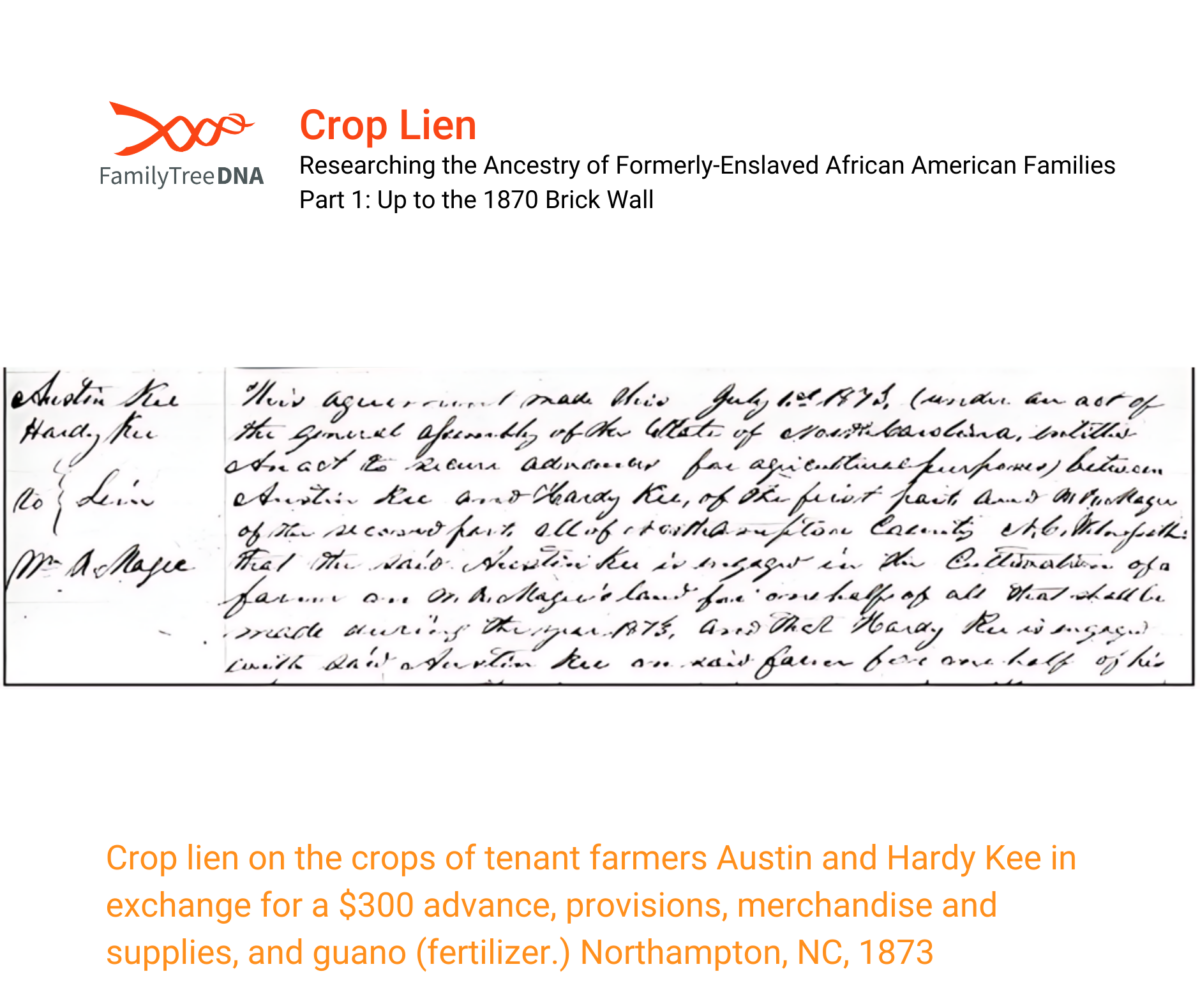 FamilyTreeDNA
Crop Lien
Researching the Ancestry of Formerly-Enslaved African American Families
Part 1: Up to the 1870 Brick Wall
Austin Kee
Hardy Kee
to } Lein
Magee
This agreement made this July 1st 1873, (under an act of
the general assembly of the State of North Carolina, entitled
An act to secure advances for agricultural purposes) between
Austin Kee and Hardy Kee, of the first part, and Magee
of the second part, all of Northampton County N.C. Witnesseth:
that the said Austin Kee is engaged in the Cultivation of a
farm on Magee's land for one half of all that shall be
made during the year 1873, and that Hardy Kee is engaged
with said Austin Kee on said farm for one half of his
Crop lien on the crops of tenant farmers Austin and Hardy Kee in
exchange for a $300 advance, provisions, merchandise and
supplies, and guano (fertilizer.) Northampton, NC, 1873